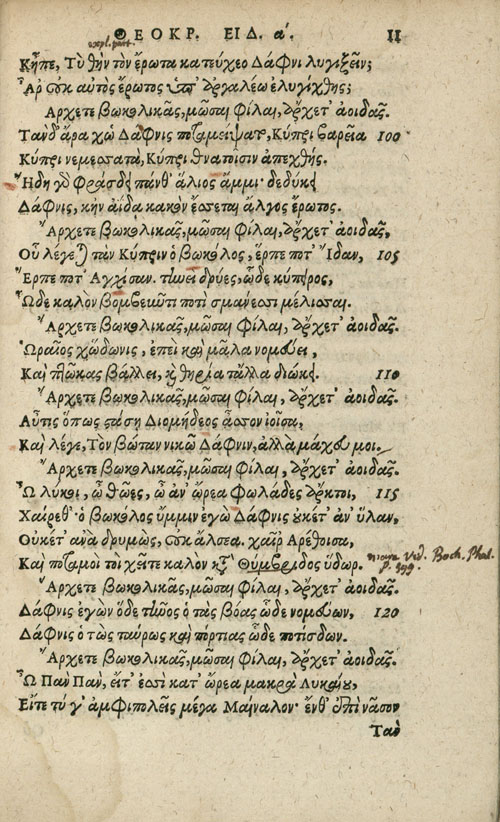 ΘΕΟΚΡ. ΕΙΔ. α΄. 11
Κῆπε, Τὺ θὴν τὸν ἔρωτα κατεύχεο Δάφνι λυγιξεῖν;
Ἆρ' οὐκ αὐτὸς ἔρωτος ὑπ' ἀργαλέω ἐλυγίχθης;
Ἄρχετε βωκολικᾶς, μῶσαι φίλαι, ἄρχετ' ἀοιδᾶς.
Τὰν δ' ἄρα χὠ Δάφνις ποταμείψατο, Κύπρι βαρεῖα 100
Κύπρι νεμεσσατὰ, Κύπρι θνατοῖσιν ἀπεχθής.
Ἤδη γὸ φράσδη πάνθ' ἅλιος ἄμμι δεδύκη
Δάφνις, κἠν ἀΐδα κακὸν ἔσσεται ἄλγος ἔρωτος.
Ἄρχετε βωκολικᾶς, μῶσαι φίλαι, ἄρχετ' ἀοιδᾶς,
Οὗ λέγεται τὰν Κύπριν ὁ βωκόλος, ἕρπε ποτ' Ἴδαν, 105
Ἕρπε ποτ' Ἀγχίσαν. τηνεὶ δρύες, ὧδε κύπειρος,
Ὧδε καλὸν βομβεῦντι ποτὶ σμάνεσσι μέλισσαι.
Ἄρχετε βωκολικᾶς, μῶσαι φίλαι, ἄρχετ' ἀοιδᾶς.
Ὡραῖος χὤδωνις, ἐπεὶ καὶ μᾶλα νομεύει,
Καὶ πτῶκας βάλλει, καὶ θηρία τἄλλα διώκη. 110
Ἄρχετε βωκολικᾶς, μῶσαι φίλαι, ἄρχετ' ἀοιδᾶς.
Αὖτις ὅπως στάση Διομήδεος ἆσσον ἰοῖσα,
Καὶ λέγε, Τὸν βώταν νικῶ Δάφνιν, ἀλλὰ μάχευ μοι.
Ἄρχετε βωκολικᾶς, μῶσαι φίλαι, ἄρχετ' ἀοιδᾶς.
Ὦ λύκοι, ὦ θῶες, ὦ ἀν' ὤρεα φωλάδες ἄρκτοι, 115
Χαίρεθ' ὁ βωκόλος ὔμμιν ἐγὼ Δάφνις οὐκέτ' ἀν' ὕλαν,
Οὐκέτ' ἀνὰ δρυμὼς, οὐκ ἄλσεα. χαῖρ' Ἀρέθοισα,
Καὶ ποταμοὶ τοὶ χεῖτε καλὸν κατὰ Θύμβριδος ὕδωρ.
Ἄρχετε βωκολικᾶς, μῶσαι φίλαι, ἄρχετ' ἀοιδᾶς.
Δάφνις ἐγὼν ὅδε τῆνος ὁ τὰς βόας ὧδε νομεύων, 120
Δάφνις ὁ τὼς ταύρως καὶ πόρτιας ὧδε ποτίσδων.
Ἄρχετε βωκολικᾶς, μῶσαι φίλαι, ἄρχετ' ἀοιδᾶς.
Ὦ Πὰν Πὰν, εἴτ' ἐσσὶ κατ' ὤρεα μακρὰ Λυκαίου,
Εἴτε τύ γ' ἀμφιπολεῖς μέγα Μαίναλον· ἔνθ' ἐπὶ νᾶσον
Τὰν